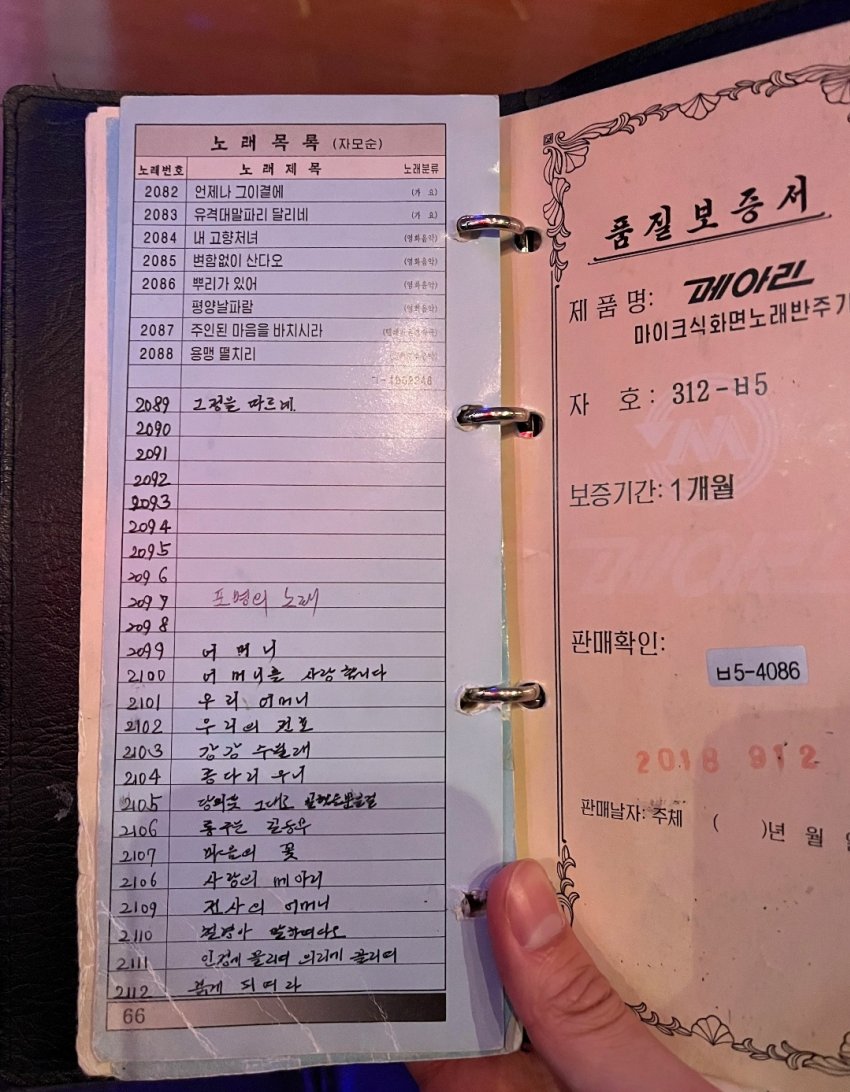 노래목록 (자모순)
노래번호 노래제목 노래분류
2082 언제나 그이곁에 (가 요)
2083 유격대말파리 달리네 (가 요)
2084 내 고향처녀 (영화음악)
2085 변함없이 산다오 (영화음악)
2086 뿌리가 있어 (영화음악)
평양날파람 (영화음악)
2087 주인된 마음을 바치시라
2088 용맹 떨치리
2089 그정을 따르네
2090
2091
2092
2093
2094
2095
2096
2097 포병의 노래
2098
2099 어머니
2100 어머니를 사랑합니다
2101 우리 어머니
2102 우리의
2103 강강수월래
2104 종다리 우니
2105 그대로
2106
2107 마음의 꽃
2106 사랑의 메아리
2109 전사의 어머니
2110 철령아 말하여다오
2111 인정에 끌리며 의리에 끌리며
2112 붉게 피여라
66
품질보증서
제품명: 메아리
마이크식화면노래반주기
자 호: 312-ㅂ5
보증기간: 1개월
판매확인:
ㅂ5-4086
2018 912
판매날자: 주체 ( )년 월